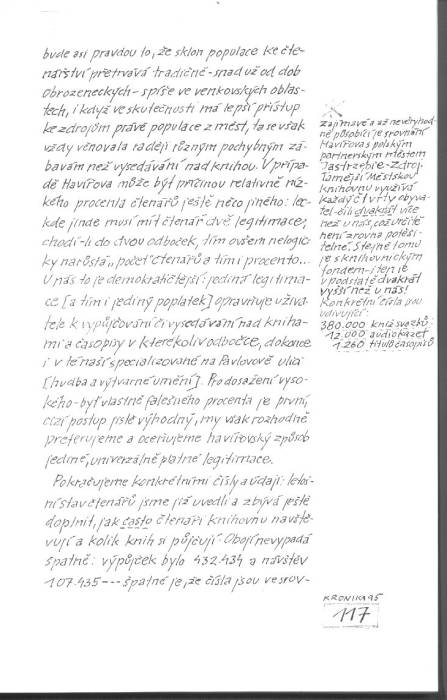 bude asi pravdou to, že sklon populace ke čte-
nářství přetrvává tradičně - snad už od dob
obrozeneckých - spíše ve venkovských oblas-
tech, i když ve skutečnosti má lepší přístup
ke zdrojům právě populace z měst, ta se však
vždy věnovala raději různým pochybným zá-
bavám než vysedávání nad knihou. V přípa-
dě Havířova může být příčinou relativně níz-
kého procenta čtenářů ještě něco jiného: lec-
kde jinde musí mít čtenář dvě legitimace,
chodí-li do dvou odboček, tím ovšem nelogic-
ky narůstá „počet čtenářů a tím i procento...
U nás to je demokratičtější: jediná legitima-
ce [a tím i jediný poplatek] opravňuje uživa-
tele k vypůjčování či vysedávání nad kniha-
mi a časopisy v kterékoliv odbočce, dokonce
i v té naší specializované na Pavlovově ulici
[hudba a výtvarné umění]. Pro dosažení vyso-
kého - byť vlastně falešného procenta je první,
cizí postup jistě výhodný, my však rozhodně
preferujeme a oceňujeme havířovský způsob
jediné, univerzálně platné legitimace.
Pokračujeme konkrétními čísly a údaji: letoš-
ní stav čtenářů jsme již uvedli a zbývá ještě
doplnit, jak často čtenáři knihovnu navště-
vují a kolik knih si půjčují. Obojí nevypadá
špatně: výpůjček bylo 432.434 a návštěv
107.435 --- špatné je, že čísla jsou ve srov-
Zajímavé a až nevěryhod-
ně působící je srovnání
Havířova s polským
partnerským městem
Jastrzebie-Zdroj.
Tamější Městskou
knihovnu využívá
každý čtvrtý obyva-
tel - čili dvakrát více
než u nás, což určitě
není zrovna potěši-
telné. Stejné tomu
je s knihovnickým
fondem - i ten je
v podstatě dvakrát
vyšší než u nás!
Konkrétní čísla jsou
udivující:
380.000 kniž. svazků
12.000 audiokazet
1.260 titulů časopisů
KRONIKA 95
117